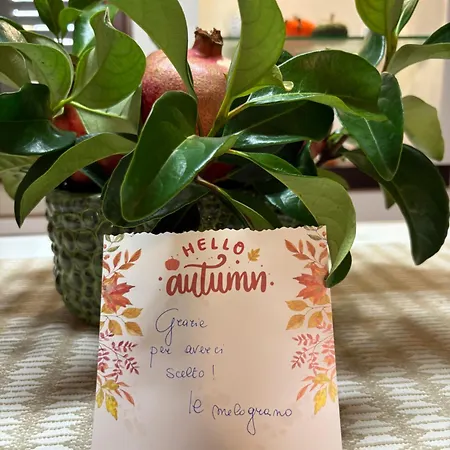 HELLO
autumn.
Grazie
per averci
scelto!
le melograno